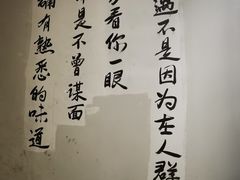 遇不是因为在人群
看你一眼
是不曾谋面
有熟悉的味道